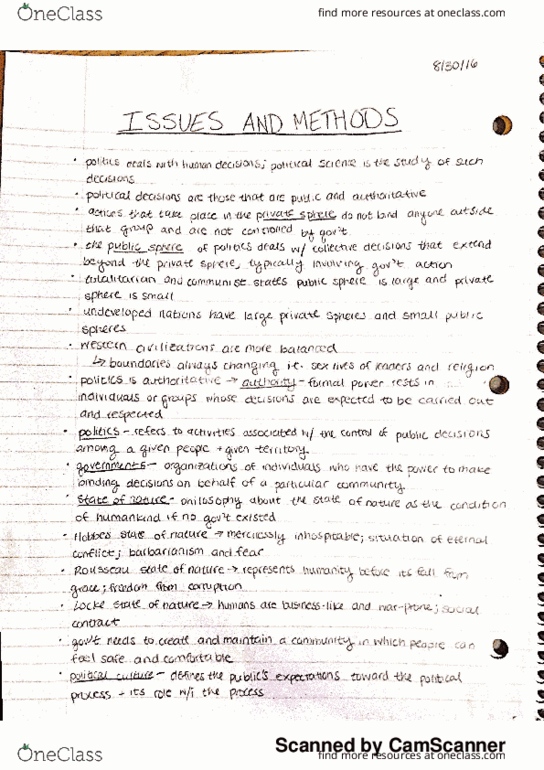 OneClass
find more resources at oneclass.com
8/30/16
ISSUES AND METHODS
• politics deals with human decisions; political science is the study of such
decisions
• political decisions are those that are public and authoritative
• actions that take place in the private sphere do not bind anyone outside
that group and are not controlled by gov't
• the public sphere of politics deals w/ collective decisions that extend
beyond the private sphere, typically involving gov't action
• totalitarian and communist states public sphere is large and private
sphere is small
• undeveloped nations have large private spheres and small public
spheres
• Western civilizations are more balanced
↳ boundaries always changing i.e. sex lives of leaders and religion
• politics is authoritative → authority - formal power rests in
individuals or groups whose decisions are expected to be carried out
and respected
• politics - refers to activities associated w/ the control of public decisions
among a given people + given territory
• governments - organizations of individuals who have the power to make
binding decisions on behalf of a particular community
• State of nature - philosophy about the state of nature as the condition
of humankind if no gov't existed
• Hobbes state of nature → mercilessly inhospitable; situation of eternal
conflict; barbarianism and fear
• Rousseau state of nature → represents humanity before its fall from
grace; freedom from corruption
• Locke state of nature → humans are business-like and war-prone; social
contract
• gov't needs to create and maintain a community in which people can
feel safe and comfortable
• political culture - defines the public's expectations toward the political
process + its role w/i the process
Scanned by CamScanner
OneClass
find more resources at oneclass.com